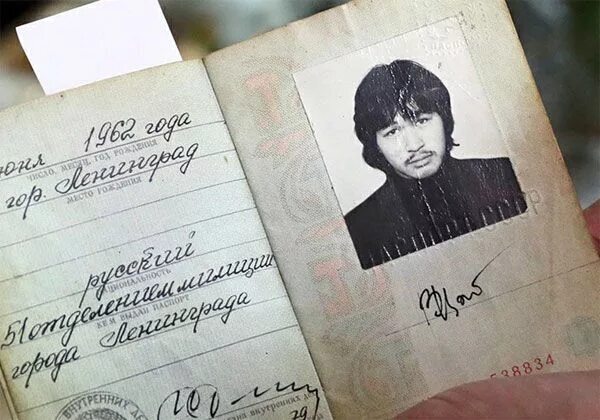 июня 1962 года
ЧИСЛО, МЕСЯЦ, ГОД РОЖДЕНИЯ
гор. Ленинград
МЕСТО РОЖДЕНИЯ
русский
НАЦИОНАЛЬНОСТЬ
51 отделением милиции
КЕМ ВЫДАН ПАСПОРТ
города Ленинграда
ВНУТРЕННИХ ДЕ
внутренних дел
СССР
538834